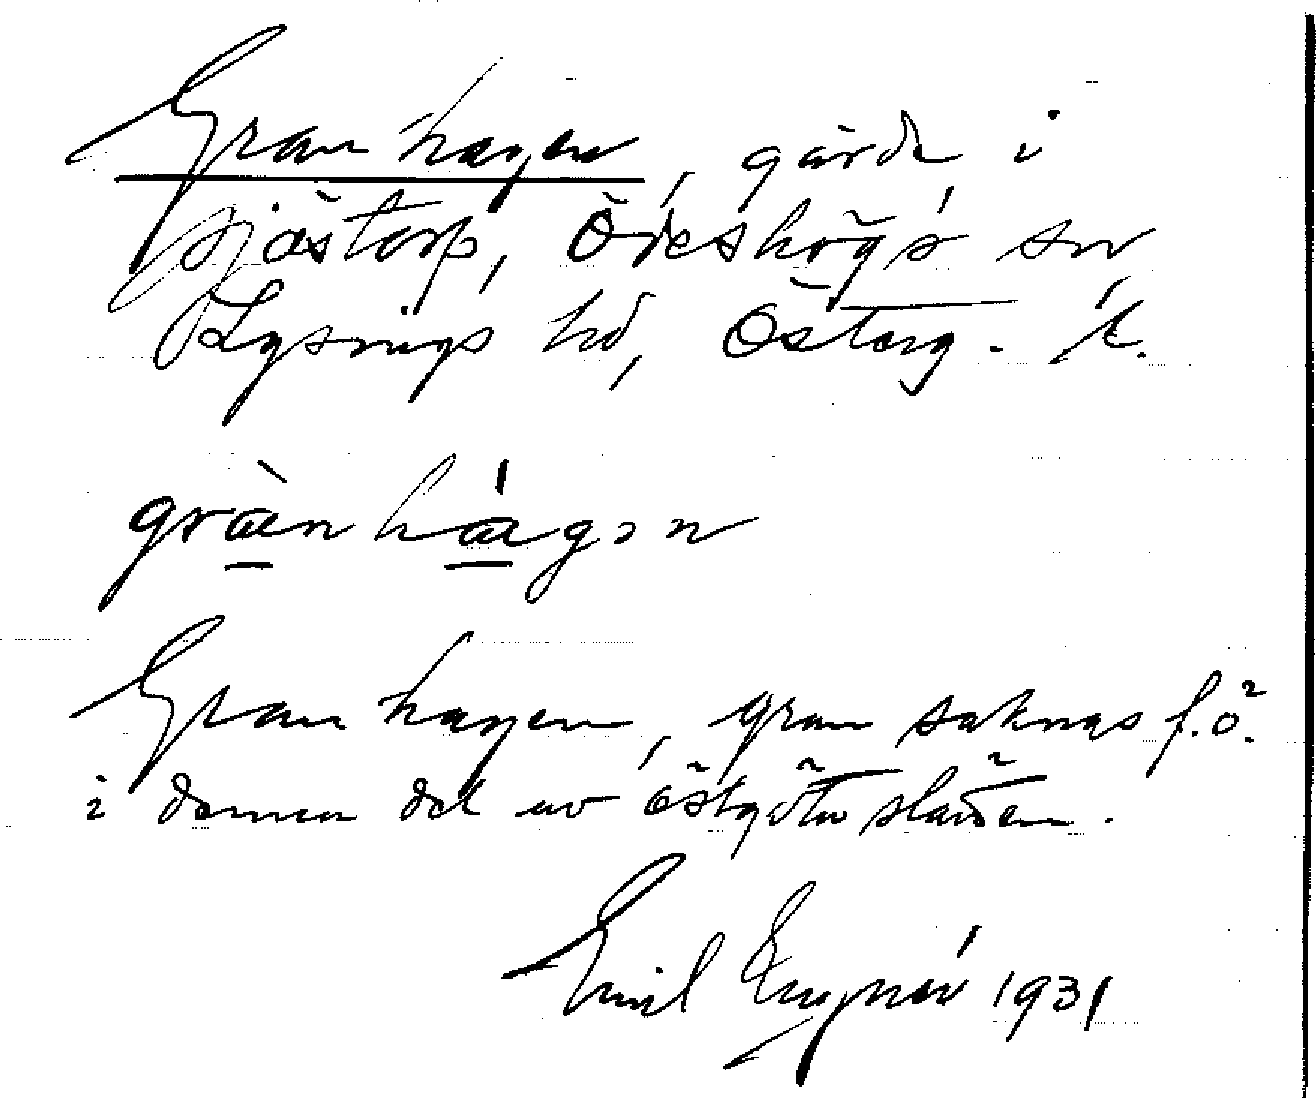 Granhagen, gärde i
Sjöstorp, Ödeshögs sn
Lysings hd, Österg. l.
grànhágən
Granhagen, gran saknas f.ö.
i denna del av östgötaslätten.
Emil 1931